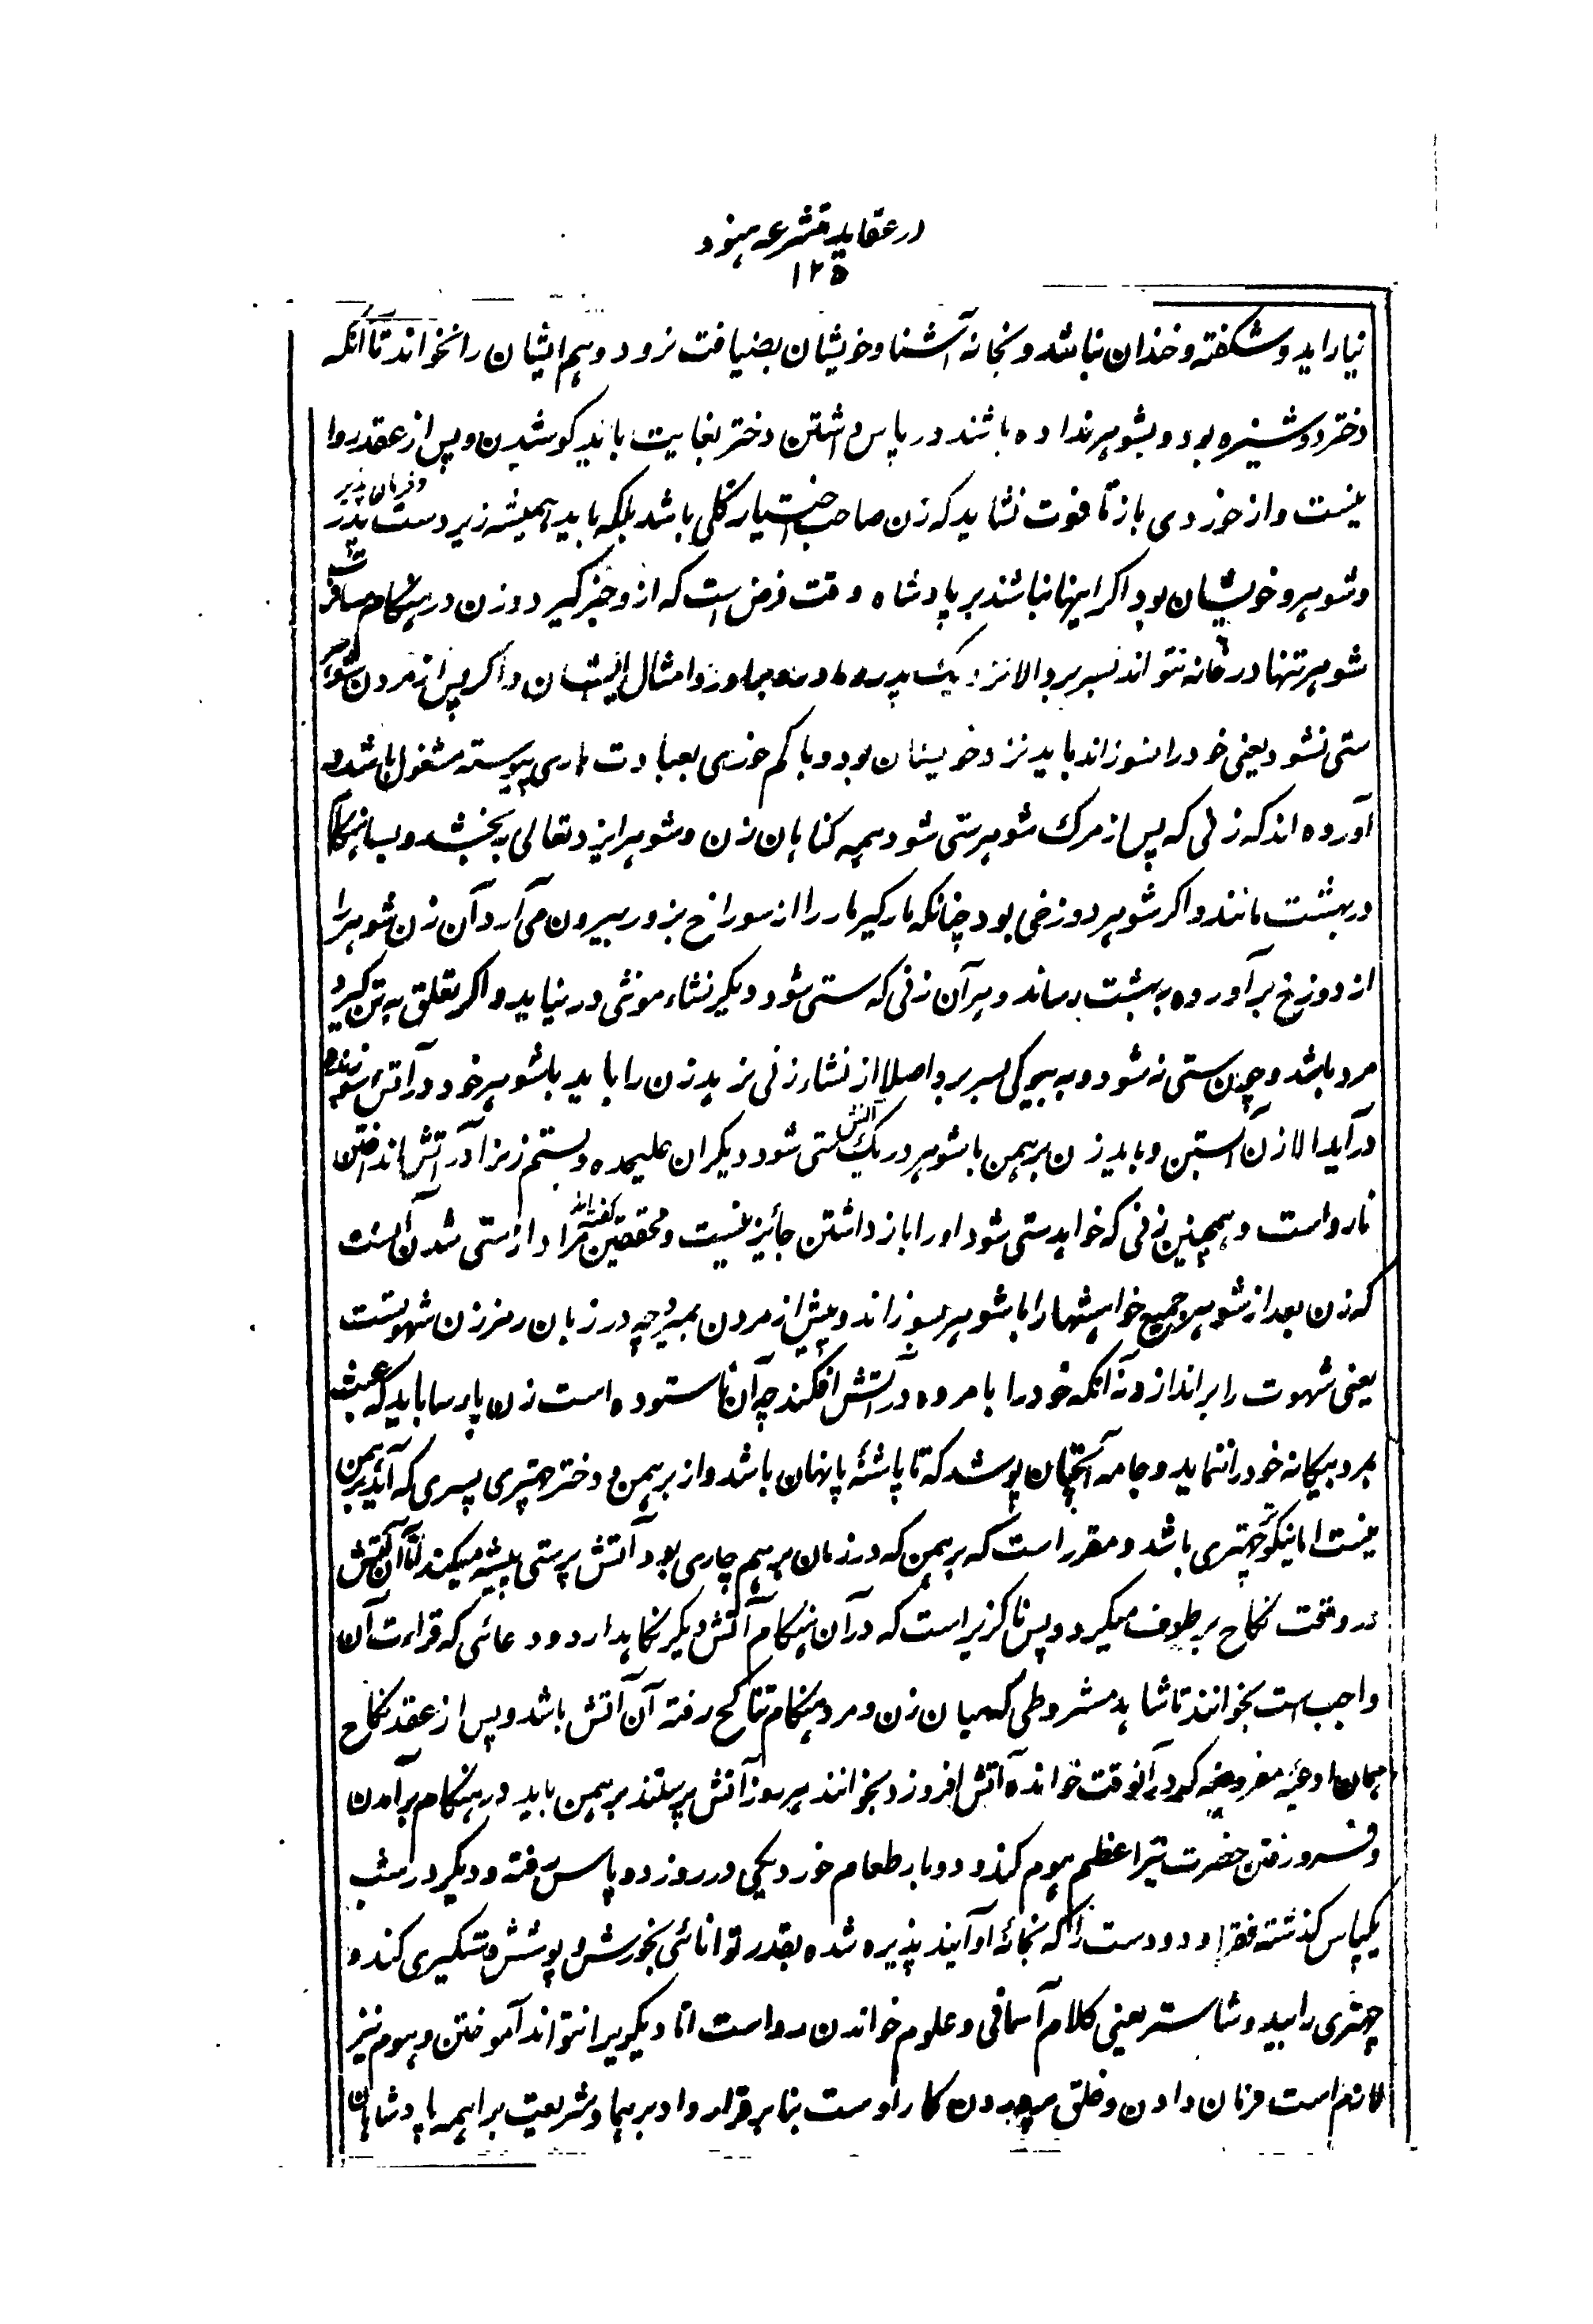 در عقاید متشرعه هنود
۱۲۵
نیاراید و شکفته و خندان نباشد و بخانه آشنا و خویشان بضیافت نرود و هم ایشان را نخواند تا آنکه
دختر دوشیزه بود و بشوهر نداده باشند در پاس داشتن دختر بغایت باید کوشیدن و پس از عقد روا
نیست و از خوردی باز تا فوت نشاید که زن صاحب اختیار کلی باشد بلکه باید همیشه زیردست پدر و فرمان پذیر
و شوهر و خویشان بود اگر اینها نباشند بر پادشاه وقت فرض است که ازو خبر گیرد و زن در هنگام مسافرت
شوهر تنها در خانه نتواند بسر برد الا نزدیک پدر و مادر و برادر و امثال ایشان و اگر پس از مردن شوهر
ستی نشود یعنی خود را نسوزاند باید نزد خویشان بود و با کم خوری بعبادت باری پیوسته مشغول باشد و
آورده اند که زنی که پس از مرگ شوهر ستی شود همه گناهان زن و شوهر ایزد تعالی ببخشد و بسیار هنگام
در بهشت مانند و اگر شوهر دوزخی بود چنانکه مارگیر مار را از سوراخ بزور بیرون می آرد آن زن شوهر را
از دوزخ برآورده به بهشت رساند و هر آن زنی که ستی شود دیگر نشاء مونثی در نیاید و اگر تعلق به تن گیرد
مرد باشد و چون ستی نه شود و به بیوگی بسر برد اصلا از نشاء زنی نرهد زن را باید با شوهر خود در آتش سوزنده
درآید الا زن آبستن و باید زن برهمن با شوهر در یک آتش ستی شود دیگران علیحده و بستم زنرا در آتش انداختن
نارواست و همچنین زنی که خواهد ستی شود او را باز داشتن جائز نیست و محققین گفته اند مراد از ستی شدن آنست
که زن بعد از شوهر جمیع خواهشها را با شوهر بسوزاند و پیش از مردن بمیرد چه در زبان رمز زن شهوتست
یعنی شهوت را براندازد نه آنکه خود را با مرده در آتش افکند چه آن ناستوده است زن پارسا باید که عبث
بمرد بیگانه خود را ننماید و جامه آنچنان پوشد که تا پاشنهٔ پا نهان باشد و از برهمن و دختر چهتری پسری که آید برهمن
نیست اما نیکوتر چهتری باشد و مقرر است که برهمن که در زمان برهم چاری بود آتش پرستی پیشه میکند اما آن آتش
در وقت نکاح بر طرف میگردد پس ناگزیر است که در آن هنگام آتش دیگر نگاهدارد و دعائی که قراءت آن
واجب است بخوانند تا شاهد مشروطی که میان زن و مرد هنگام تناکح رفته آن آتش باشد و پس از عقد نکاح
همان ادعیه مفروضه که در آنوقت خوانده آتش افروزد بخوانند هر روز آتش پرستند برهمن باید در هنگام برآمدن
و فرو رفتن حضرت نیر اعظم هوم کند و دو بار طعام خورد یکی در روز دو پاس رفته و دیگر در شب
یکپاس گذشته فقرا و دوست را که بخانهٔ او آیند پذیره شده بقدر توانائی بخورش و پوشش دستگیری کند و
چهتری را بید و شاستر یعنی کلام آسمانی و علوم خواندن رواست اما دیگریرا نتواند آموختن و هوم نیز
لازم است فرمان دادن و خلق پروردن کار اوست بنا بر قرارداد برهما و شریعت براهمه پادشاهان